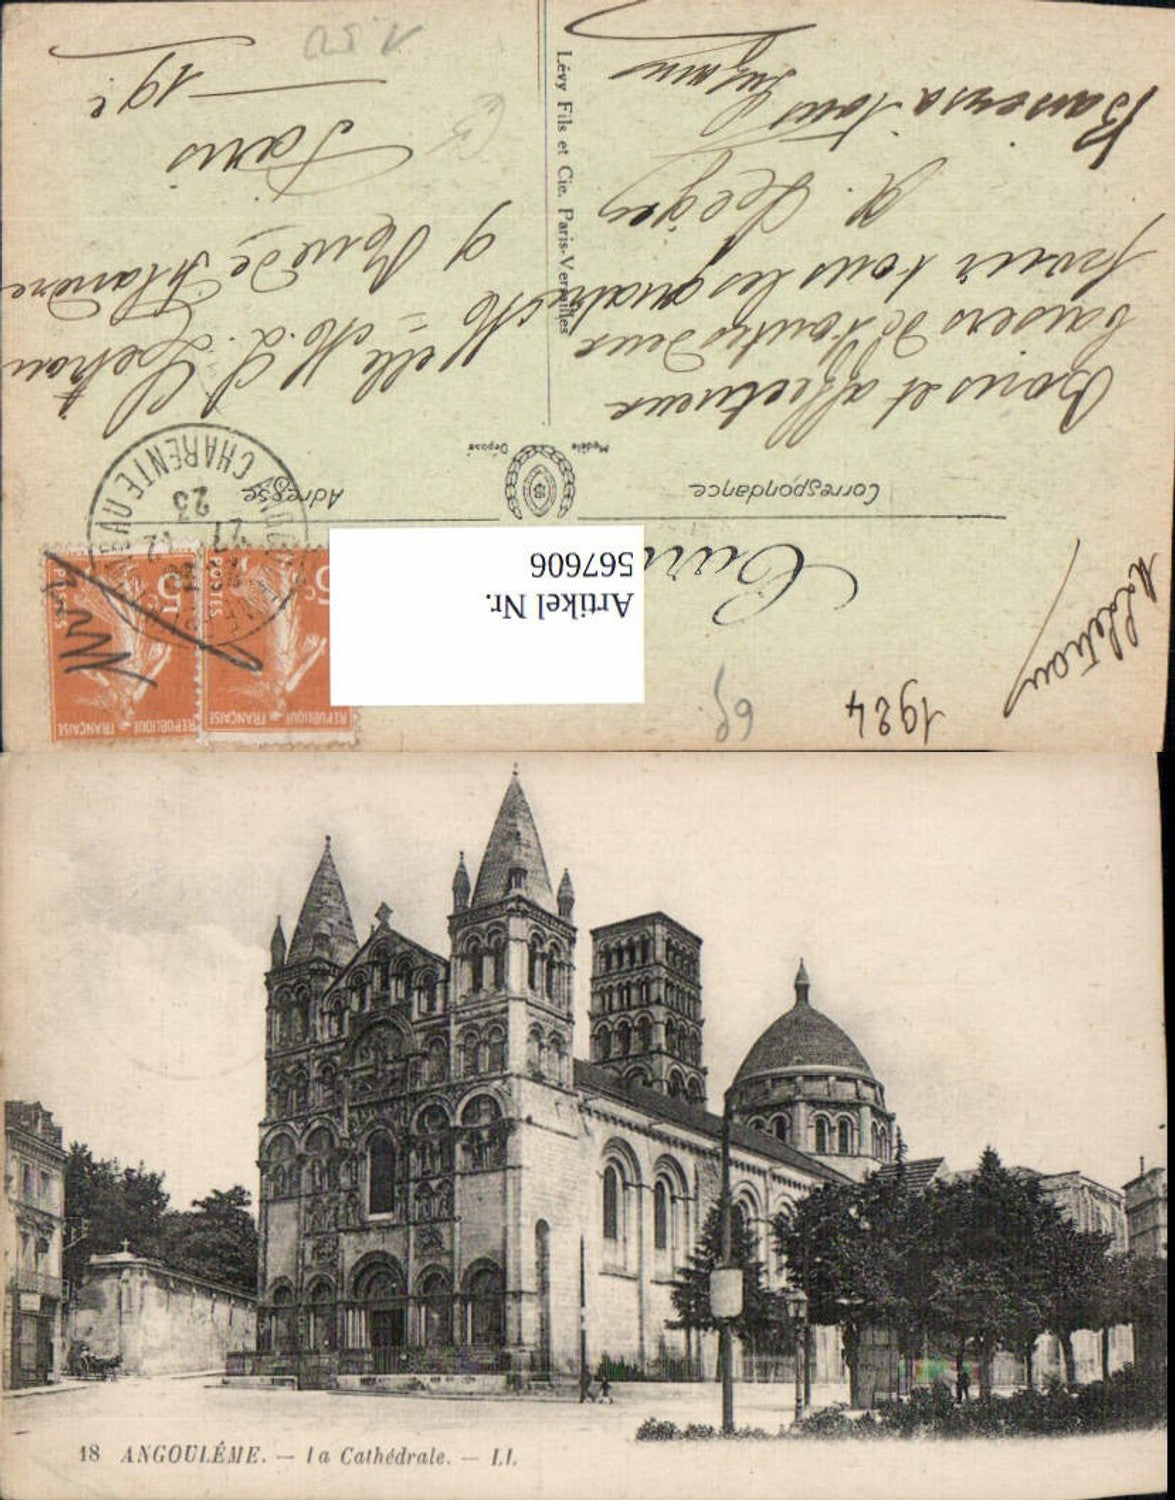 1924
Artikel Nr.
567606
Correspondance
Adresse
Modèle
Déposé
Bons et affectueux
baisers de toutes deux
pour tous les quatre
Baisers à tous
Suzanne
Melle M. L.
9 Rue de Flandre
Paris
19e
Lévy Fils et Cie. Paris-Versailles
CHARENTE
23
REPUBLIQUE FRANÇAISE
POSTES
5c
REPUBLIQUE FRANÇAISE
POSTES
5c
18 ANGOULÊME. — La Cathédrale. — LL.